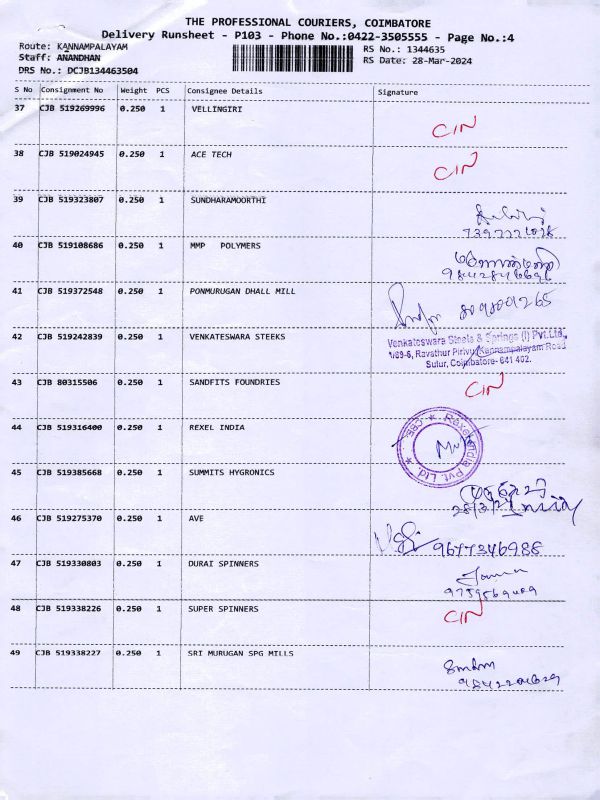 THE PROFESSIONAL COURIERS, COIMBATORE
Delivery Runsheet - P103 - Phone No.:0422-3505555 - Page No.:4
Route: KANNAMPALAYAM
RS No.: 1344635
Staff: ANANDHAN
RS Date: 28-Mar-2024
DRS No.: DCJB134463504
S No Consignment No Weight PCS Consignee Details Signature
37 CJB 519269996 0.250 1 VELLINGIRI
CIN
38 CJB 519024945 0.250 1 ACE TECH
CIN
39 CJB 519323807 0.250 1 SUNDHARAMOORTHI
40 CJB 519108686 0.250 1 MMP POLYMERS
41 CJB 519372548 0.250 1 PONMURUGAN DHALL MILL
8098001265
42 CJB 519242839 0.250 1 VENKATESWARA STEEKS
Venkateswara Steels & Springs (I) Pvt.Ltd.,
1/89-6, Ravathur Pirivu, Kannampalayam Road
Sulur, Coimbatore- 641 402.
43 CJB 80315506 0.250 1 SANDFITS FOUNDRIES
CIN
44 CJB 519316400 0.250 1 REXEL INDIA
Rexel India Pvt. Ltd. * CBE. *
45 CJB 519385668 0.250 1 SUMMITS HYGRONICS
28/3/24
46 CJB 519275370 0.250 1 AVE
9677346988
47 CJB 519330803 0.250 1 DURAI SPINNERS
48 CJB 519338226 0.250 1 SUPER SPINNERS
CIN
49 CJB 519338227 0.250 1 SRI MURUGAN SPG MILLS